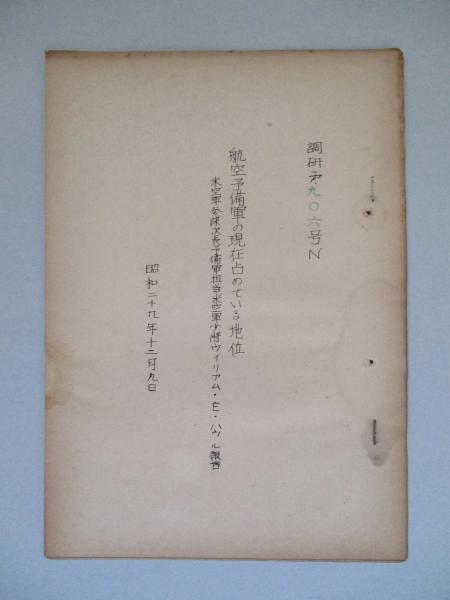 調研才九〇六号N
航空予備軍の現在占めている地位
米空軍参謀次長予備軍担当米空軍少将ウィリアム・E・ハウル報告
昭和二十九年十二月九日